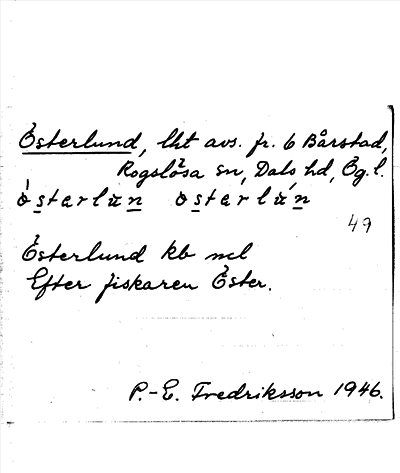 Österlund, lht avs. fr. 6 Bårstad,
Rogslösa sn, Dals hd, Ög. l.
òstərlu̇n östərlún
49
Österlund kb ncl
Efter fiskaren Öster.
P.-E. Fredriksson 1946.